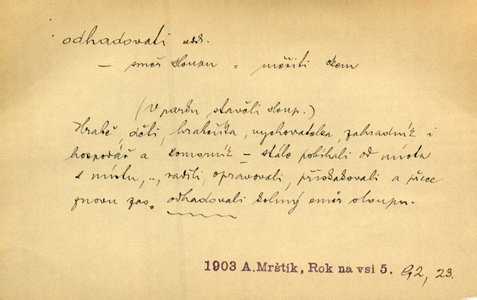 odhadovati ned.
— směr sloupu = měřiti okem
(V parku stavěli sloup.)
Hrabě, děti, hraběnka, vychovatelka, zahradník i
hospodář a komorník — stále pobíhali od místa
k místu, .., radili, opravovali, přeskakovali a přece
znovu zas. odhadovali kolmý směr sloupu.
1903 A. Mrštík, Rok na vsi 5. G2, 23.